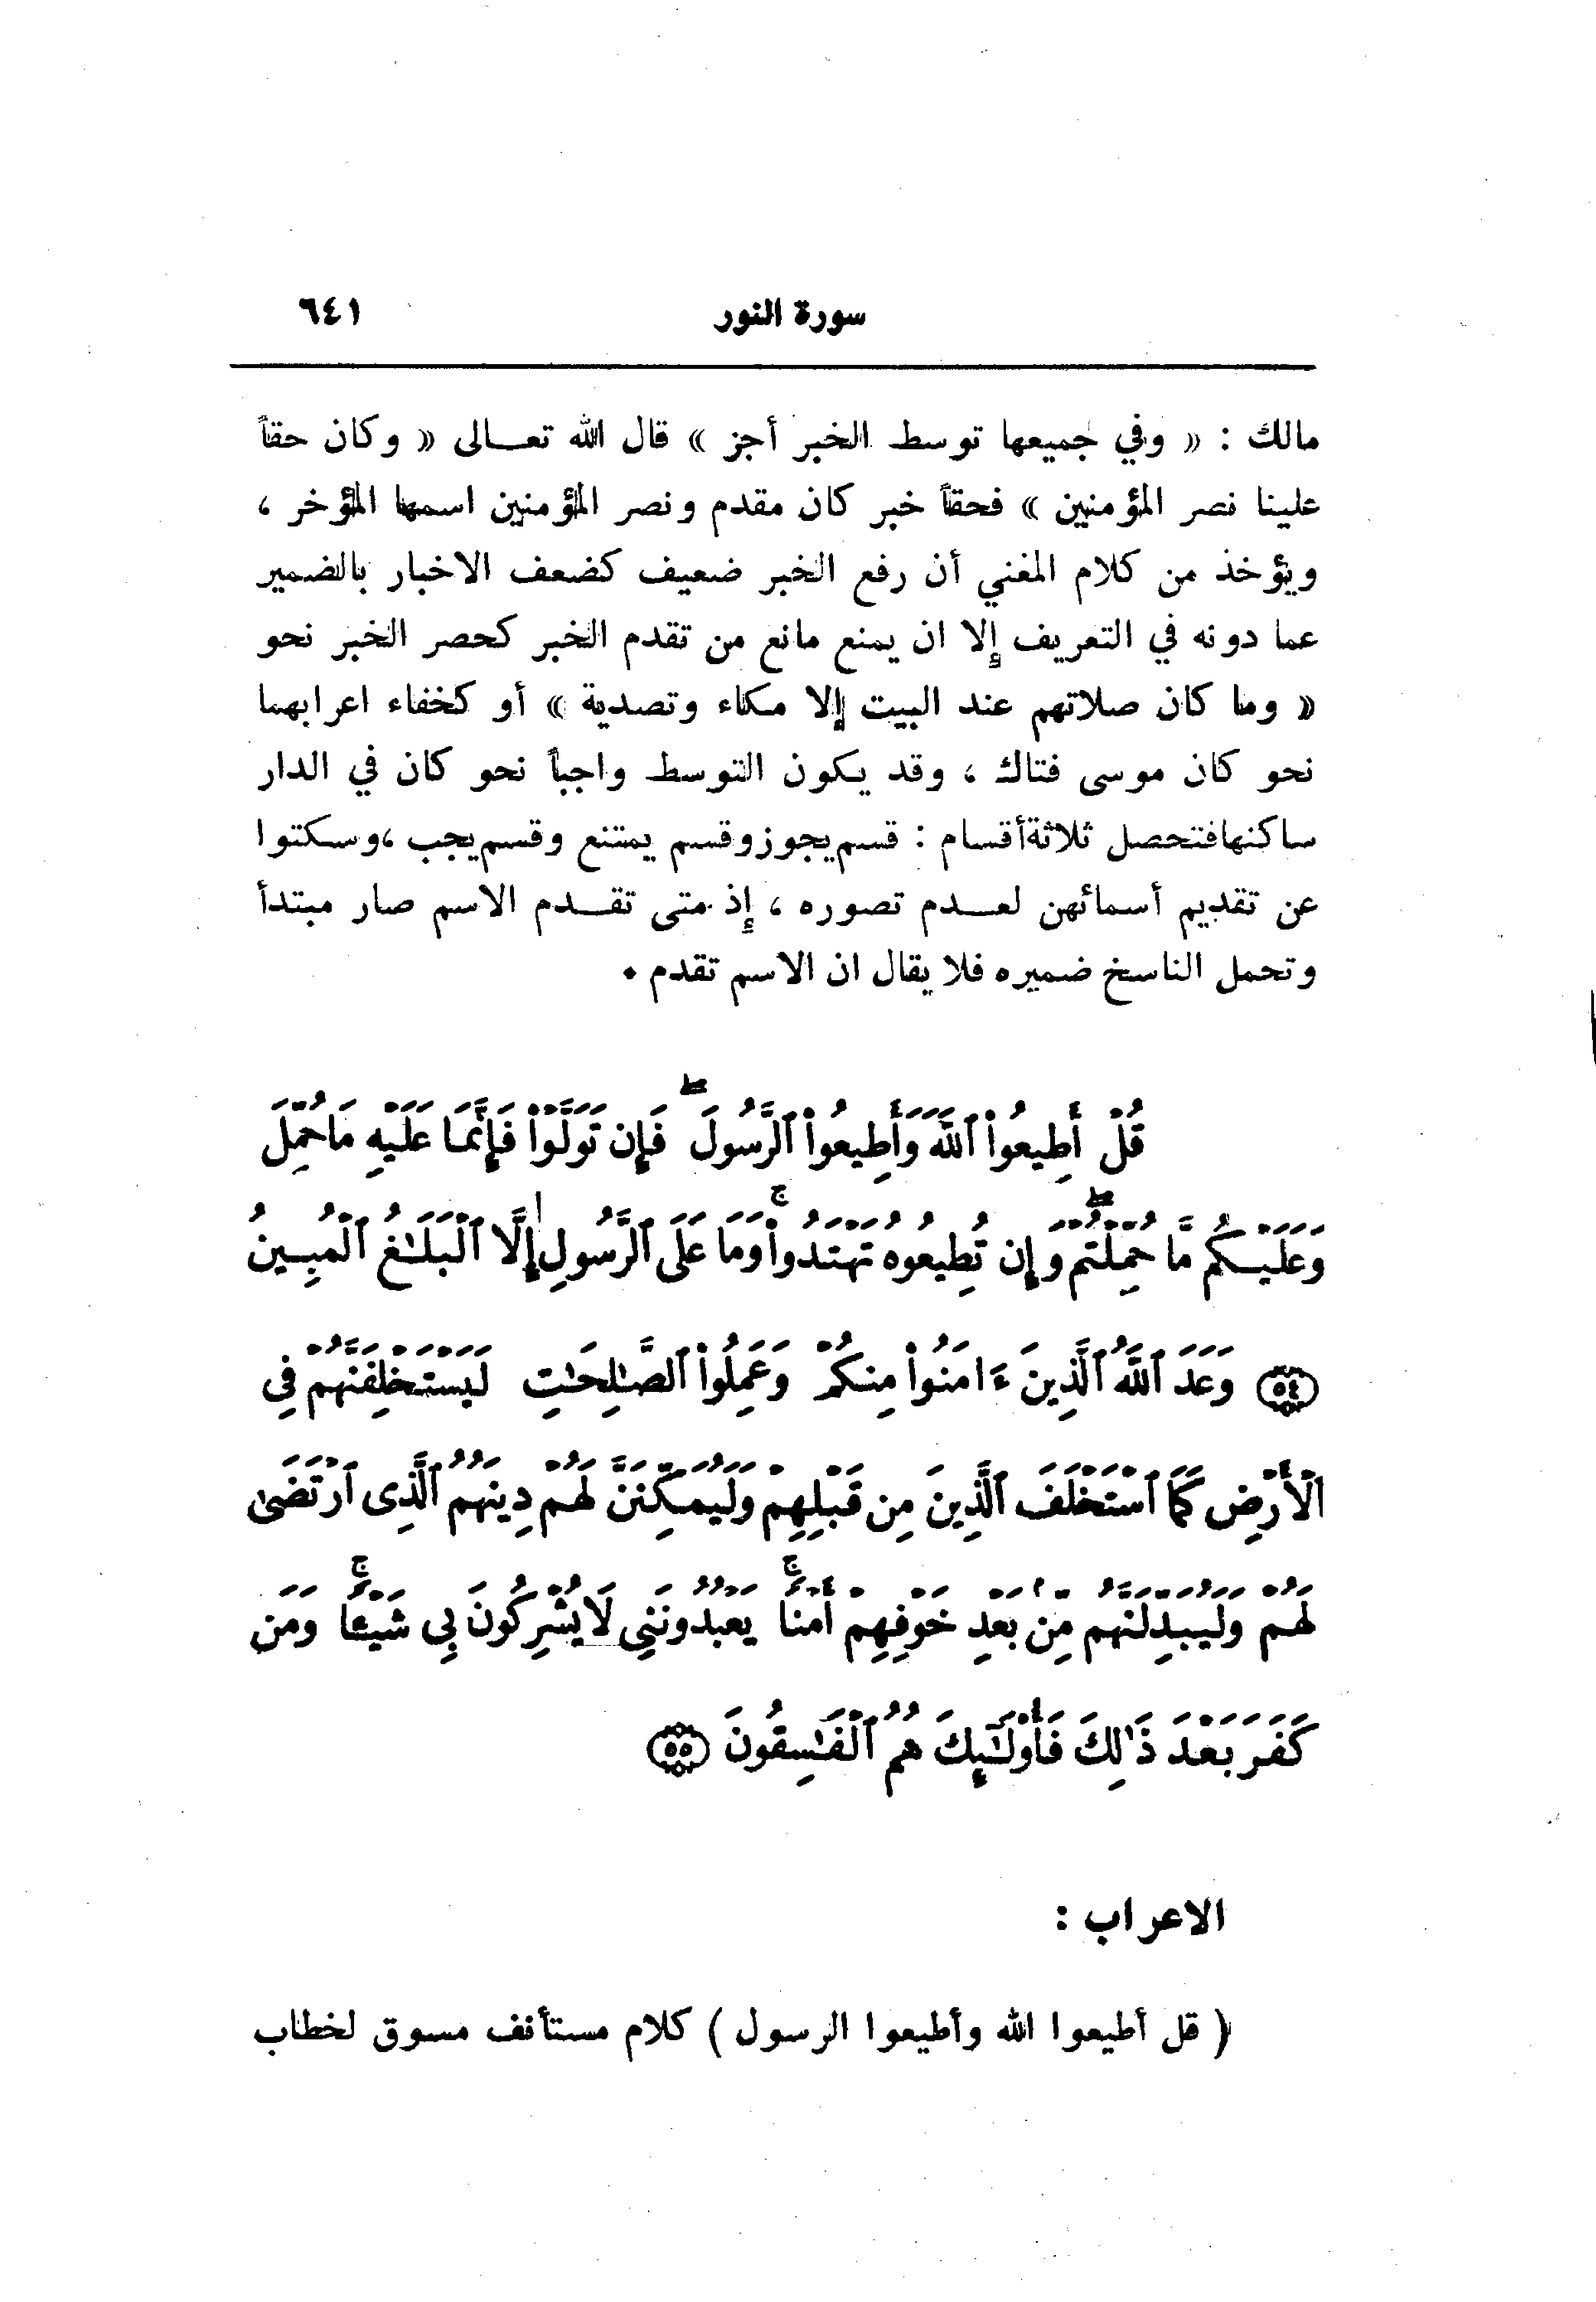 سورة النور ٦٤١
مالك : « وفي جميعها توسط الخبر أجز » قال الله تعـالى « وكان حقاً
علينا نصر المؤمنين » فحقاً خبر كان مقدم ونصر المؤمنين اسمها المؤخر ،
ويؤخذ من كلام المغني أن رفع الخبر ضعيف كضعف الاخبار بالضمير
عما دونه في التعريف إلا ان يمنع مانع من تقدم الخبر كحصر الخبر نحو
« وما كان صلاتهم عند البيت إلا مكاء وتصدية » أو كخفاء اعرابهما
نحو كان موسى فتاك ، وقد يكون التوسط واجباً نحو كان في الدار
ساكنها فتحصل ثلاثة أقسام : قسم يجوز وقسم يمتنع وقسم يجب ، وسكتوا
عن تقديم أسمائهن لعـدم تصوره ، إذ متى تقـدم الاسم صار مبتدأ
وتحمل الناسخ ضميره فلا يقال ان الاسم تقدم .
قُلْ أَطِيعُوا۟ ٱللَّهَ وَأَطِيعُوا۟ ٱلرَّسُولَ ۖ فَإِن تَوَلَّوْا۟ فَإِنَّمَا عَلَيْهِ مَا حُمِّلَ
وَعَلَيْكُم مَّا حُمِّلْتُمْ ۖ وَإِن تُطِيعُوهُ تَهْتَدُوا۟ ۚ وَمَا عَلَى ٱلرَّسُولِ إِلَّا ٱلْبَلَٰغُ ٱلْمُبِينُ
﴿٥٤﴾ وَعَدَ ٱللَّهُ ٱلَّذِينَ ءَامَنُوا۟ مِنكُمْ وَعَمِلُوا۟ ٱلصَّٰلِحَٰتِ لَيَسْتَخْلِفَنَّهُمْ فِى
ٱلْأَرْضِ كَمَا ٱسْتَخْلَفَ ٱلَّذِينَ مِن قَبْلِهِمْ وَلَيُمَكِّنَنَّ لَهُمْ دِينَهُمُ ٱلَّذِى ٱرْتَضَىٰ
لَهُمْ وَلَيُبَدِّلَنَّهُم مِّنۢ بَعْدِ خَوْفِهِمْ أَمْنًا ۚ يَعْبُدُونَنِى لَا يُشْرِكُونَ بِى شَيْـًٔا ۚ وَمَن
كَفَرَ بَعْدَ ذَٰلِكَ فَأُو۟لَٰٓئِكَ هُمُ ٱلْفَٰسِقُونَ ﴿٥٥﴾
الاعراب :
( قل أطيعوا الله وأطيعوا الرسول ) كلام مستأنف مسوق لخطاب